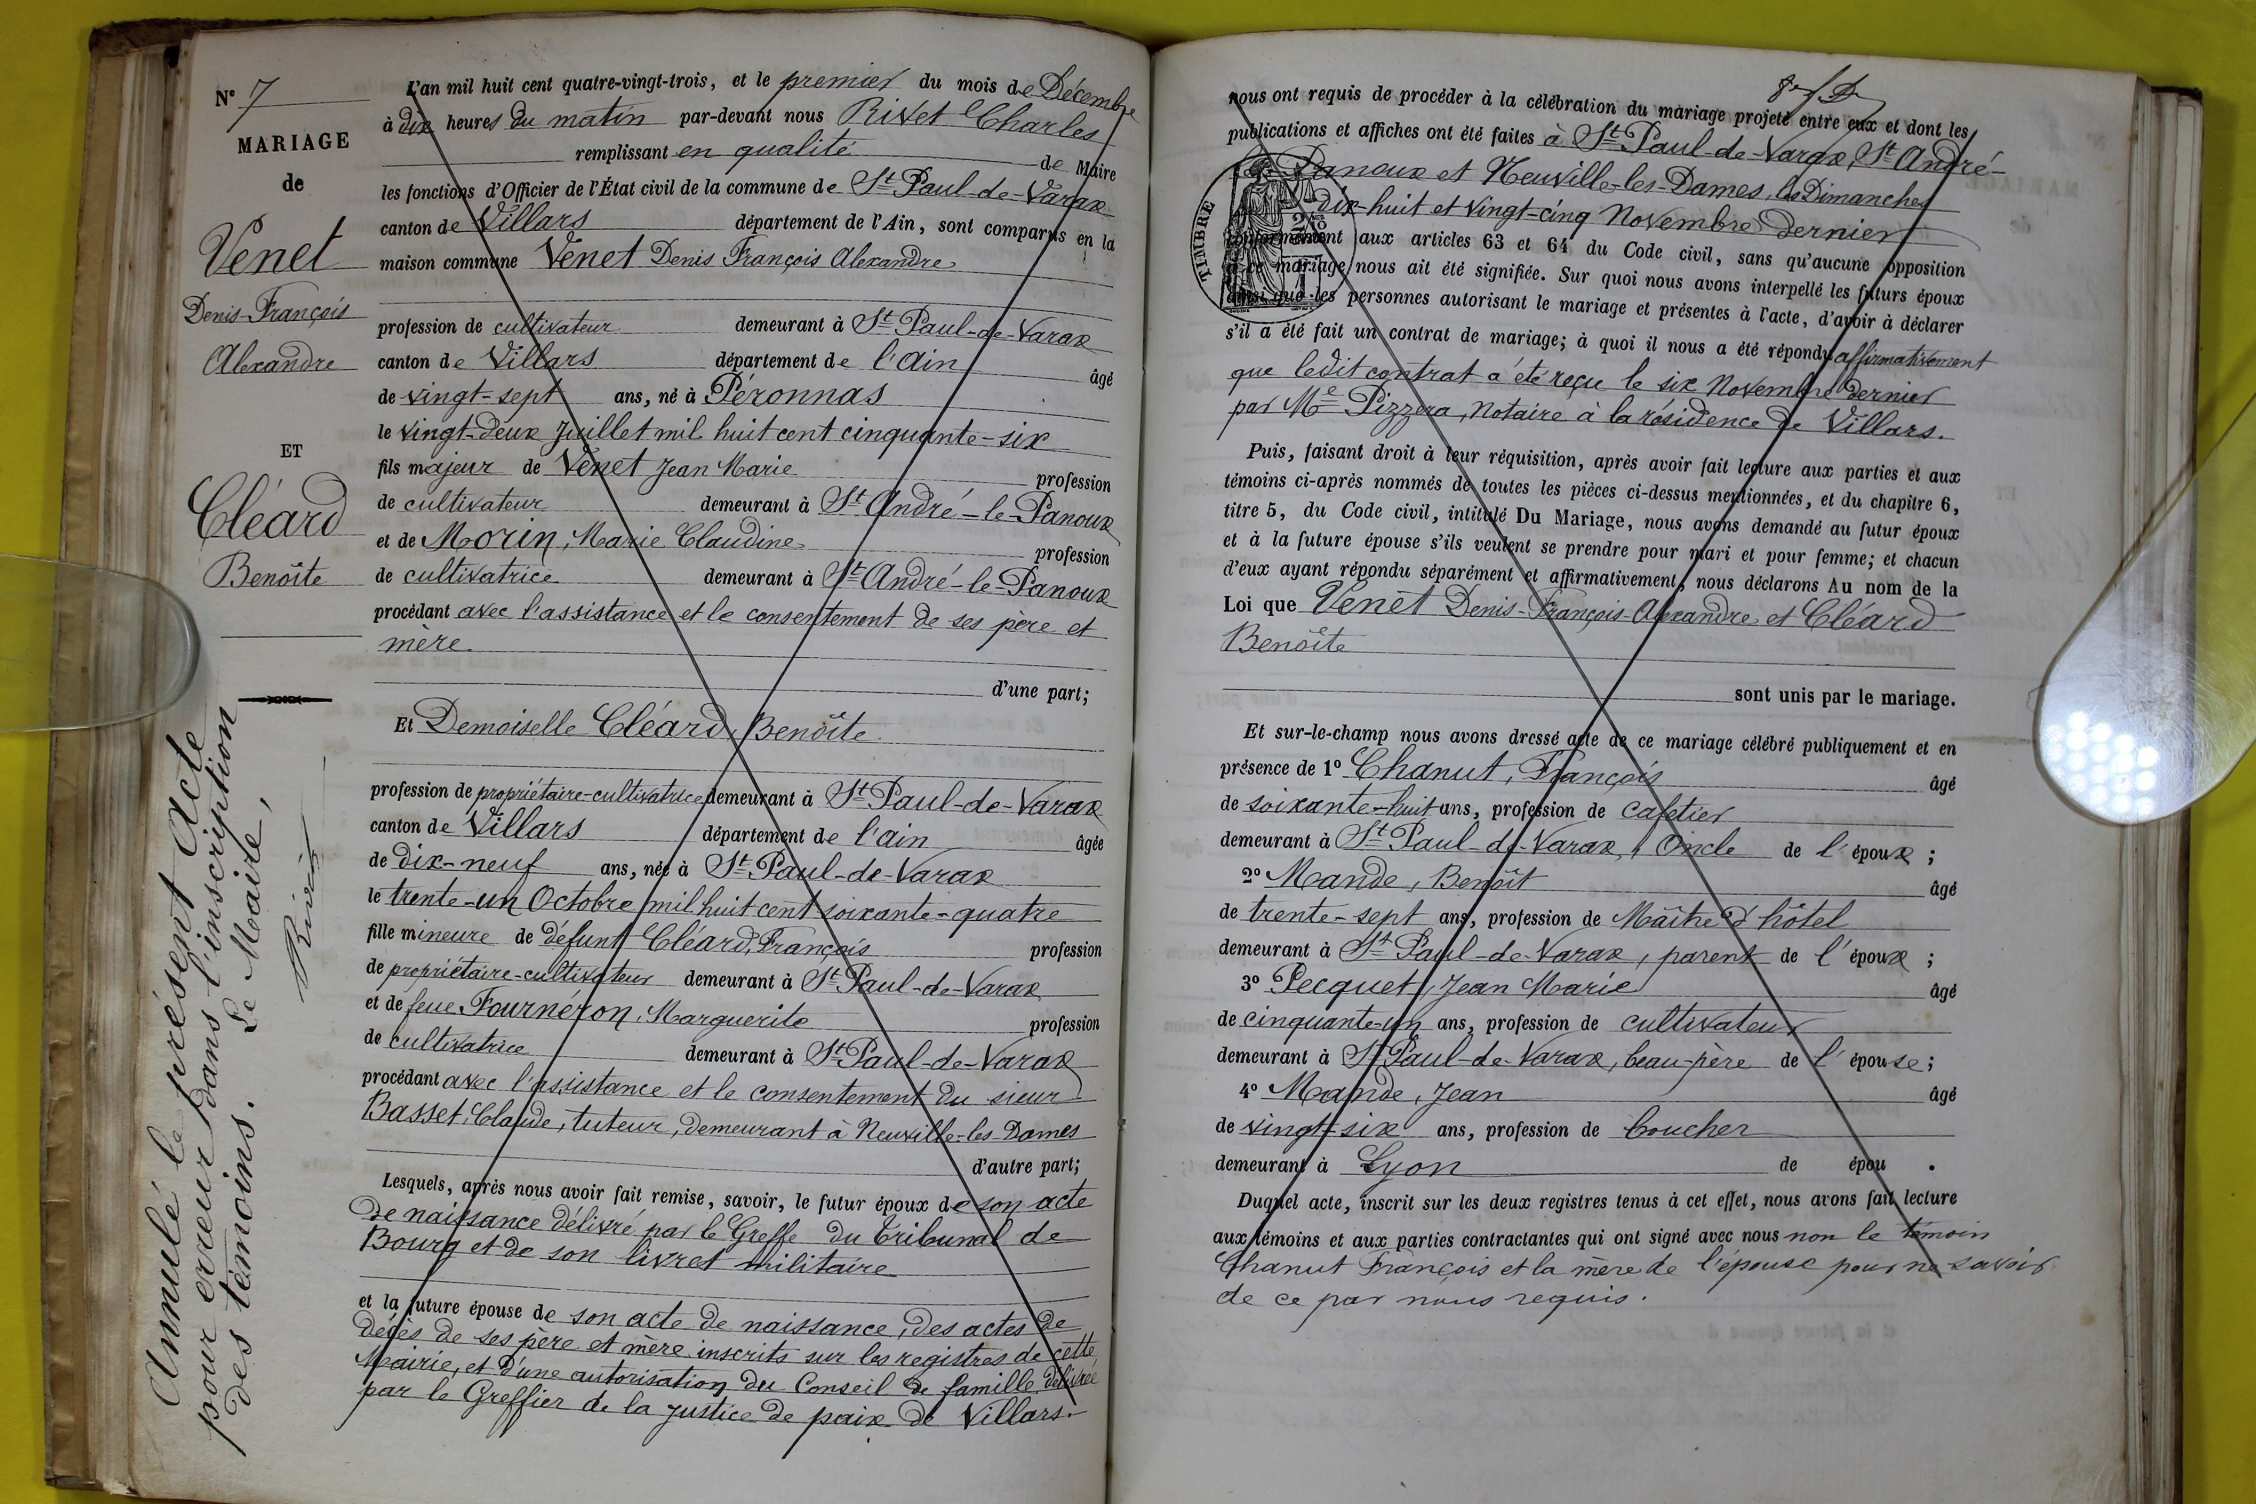 N° 7
MARIAGE
de
Venet
Denis-François
Alexandre
ET
Cléard
Benoîte
Annulé le présent Acte
pour erreur dans l'inscription
des témoins. Le Maire,
Rivet
L'an mil huit cent quatre-vingt-trois, et le premier du mois de Décembre
à dix heures du matin par-devant nous Rivet Charles
remplissant en qualité de Maire
les fonctions d'Officier de l'État civil de la commune de St Paul-de-Varax
canton de Villars département de l'Ain, sont comparus en la
maison commune Venet Denis François Alexandre
profession de cultivateur demeurant à St Paul-de-Varax
canton de Villars département de l'Ain âgé
de vingt-sept ans, né à Péronnas
le vingt-deux Juillet mil huit cent cinquante-six
fils majeur de Venet Jean Marie profession
de cultivateur demeurant à St André-le-Panoux
et de Morin, Marie Claudine profession
de cultivatrice demeurant à St André-le-Panoux
procédant avec l'assistance et le consentement de ses père et
mère
d'une part;
Et Demoiselle Cléard, Benoîte
profession de propriétaire-cultivatrice demeurant à St Paul-de-Varax
canton de Villars département de l'ain âgée
de dix-neuf ans, née à St Paul-de-Varax
le trente-un Octobre mil huit cent soixante-quatre
fille mineure de défunt Cléard, François profession
de propriétaire-cultivateur demeurant à St Paul-de-Varax
et de feue Fournéron, Marguerite profession
de cultivatrice demeurant à St Paul-de-Varax
procédant avec l'assistance et le consentement du sieur
Basset, Claude, tuteur, demeurant à Neuville-les-Dames
d'autre part;
Lesquels, après nous avoir fait remise, savoir, le futur époux de son acte
de naissance délivré par le Greffe du Tribunal de
Bourg et de son livret militaire
et la future épouse de son acte de naissance, des actes de
décès de ses père et mère inscrits sur les registres de cette
Mairie, et d'une autorisation du Conseil de famille délivrée
par le Greffier de la Justice de paix de Villars.
nous ont requis de procéder à la célébration du mariage projeté entre eux et dont les
publications et affiches ont été faites à St Paul-de-Varax, St André-
le-Panoux et Neuville-les-Dames, les Dimanches
dix-huit et vingt-cinq Novembre dernier
TIMBRE
conformément aux articles 63 et 64 du Code civil, sans qu'aucune opposition
à ce mariage nous ait été signifiée. Sur quoi nous avons interpellé les futurs époux
ainsi que les personnes autorisant le mariage et présentes à l'acte, d'avoir à déclarer
s'il a été fait un contrat de mariage; à quoi il nous a été répondu affirmativement
que ledit contrat a été reçu le six Novembre dernier
par Me Pizzera, Notaire à la résidence de Villars.
Puis, faisant droit à leur réquisition, après avoir fait lecture aux parties et aux
témoins ci-après nommés de toutes les pièces ci-dessus mentionnées, et du chapitre 6,
titre 5, du Code civil, intitulé Du Mariage, nous avons demandé au futur époux
et à la future épouse s'ils veulent se prendre pour mari et pour femme; et chacun
d'eux ayant répondu séparément et affirmativement, nous déclarons Au nom de la
Loi que Venet Denis-François-Alexandre et Cléard
Benoîte
sont unis par le mariage.
Et sur-le-champ nous avons dressé acte de ce mariage célébré publiquement et en
présence de 1° Chanut, François âgé
de soixante-huit ans, profession de cafetier
demeurant à St Paul-de-Varax, Oncle de l'époux;
2° Mande, Benoît âgé
de trente-sept ans, profession de Maître d'hôtel
demeurant à St Paul-de-Varax, parent de l'époux;
3° Pecquet, Jean Marie âgé
de cinquante-un ans, profession de cultivateur
demeurant à St Paul-de-Varax, beau-père de l'épouse;
4° Mande, Jean âgé
de vingt-six ans, profession de boucher
demeurant à Lyon de épou .
Duquel acte, inscrit sur les deux registres tenus à cet effet, nous avons fait lecture
aux témoins et aux parties contractantes qui ont signé avec nous non le témoin
Chanut François et la mère de l'épouse pour ne savoir
de ce par nous requis.